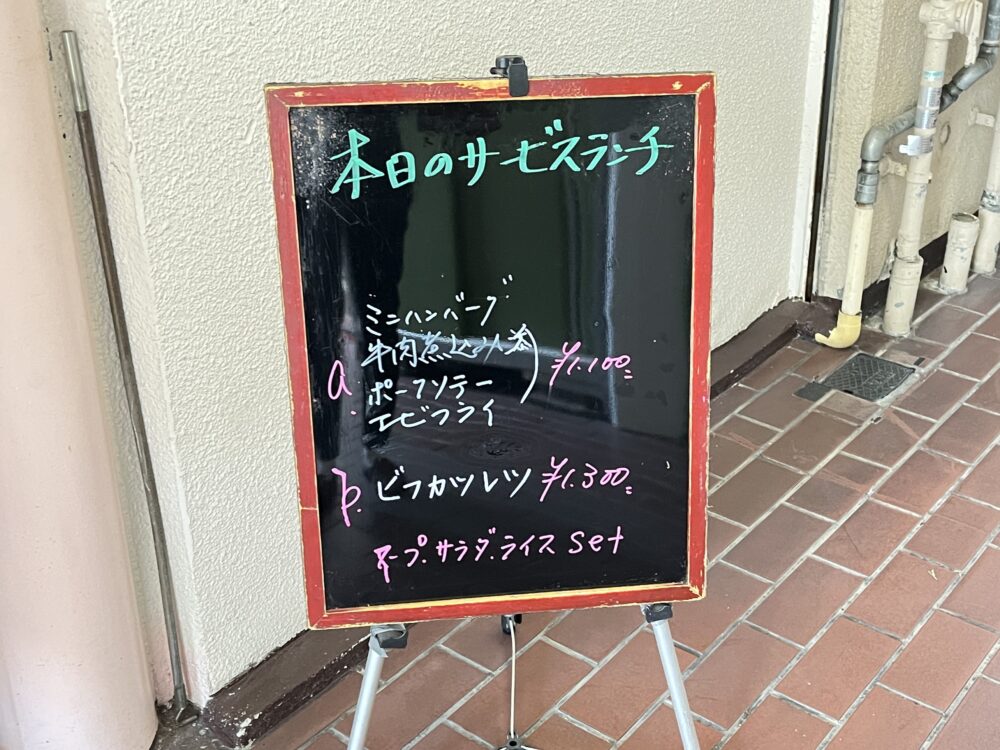 本日のサービスランチ
a.
ミニハンバーグ
牛肉煮込み
ポークソテー
エビフライ
¥1.100
b. ビフカツレツ ¥1.300
スープ.サラダ.ライス set